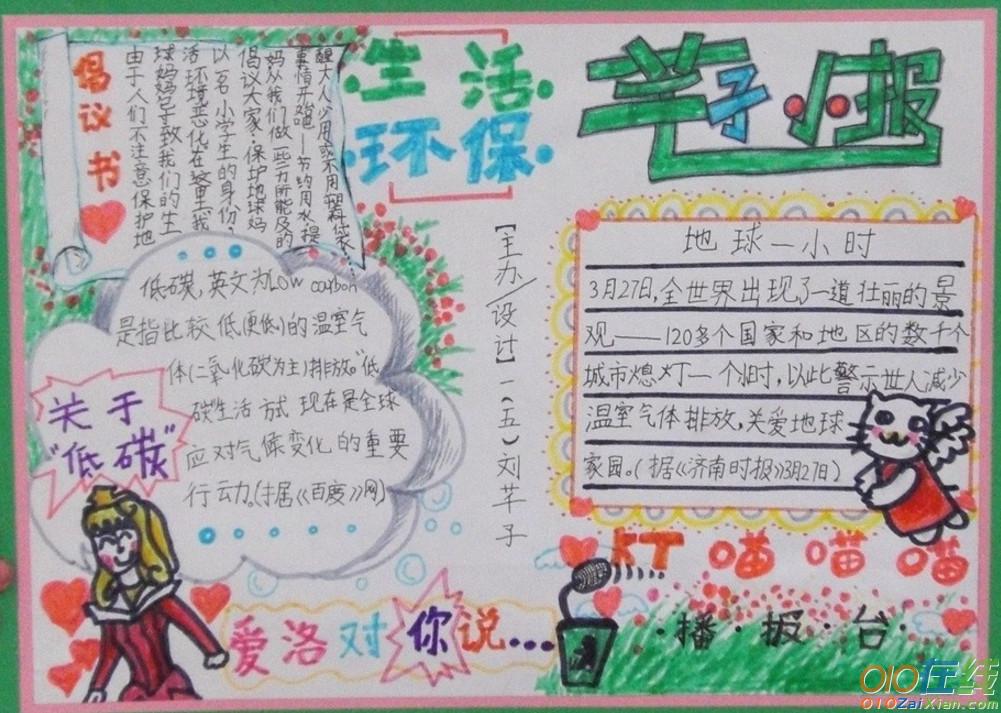 倡议书
由于人们不注意保护地
球妈妈,导致我们的生
活环境恶化在这里,我
以一名小学生的身份,
倡议大家:保护地球妈
妈从我们做一些力所能及的
事情开始吧——节约用水,提
醒大人少用或不用塑料袋……
生活
环保
芊子小报
低碳,英文为low carbon
是指比较低(更低)的温室气
体(二氧化碳为主)排放。"低
碳"生活方式现在是全球
应对气候变化的重要
行动。(据《百度》网)
关于
"低碳"
【主办/设计】一(五)刘芊子
地球一小时
3月27日,全世界出现了一道壮丽的景
观——120多个国家和地区的数千个
城市熄灯一个小时,以此警示世人减少
温室气体排放,关爱地球
家园。(据《济南时报》3月27日)
KT喵喵喵
·播·报·台·
爱洛对你说…
010在线
010ZaiXian.com